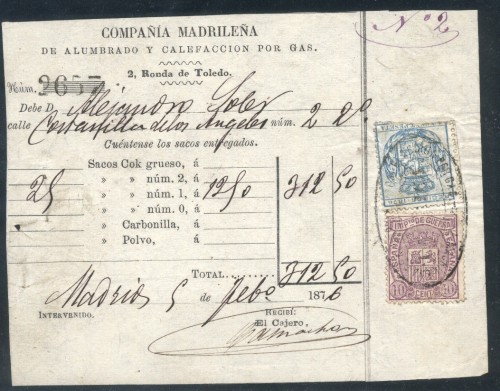 Nº 2
COMPAÑÍA MADRILEÑA
DE ALUMBRADO Y CALEFACCION POR GAS.
2, Ronda de Toledo.
Núm. 2657
Debe D. Alejandro Soler
calle Costanilla de los Angeles núm. 2 2º
Cuéntense los sacos entregados.
Sacos Cok grueso, á
» » núm. 2, á
25 » » núm. 1, á 12 50 312 50
» » núm. 0, á
» Carbonilla, á
» Polvo, á
TOTAL 312 50
Madrid 5 de Febº 1876
INTERVENIDO.
RECIBÍ:
El Cajero,
IMPTO DE GUERRA
10 CENT 10